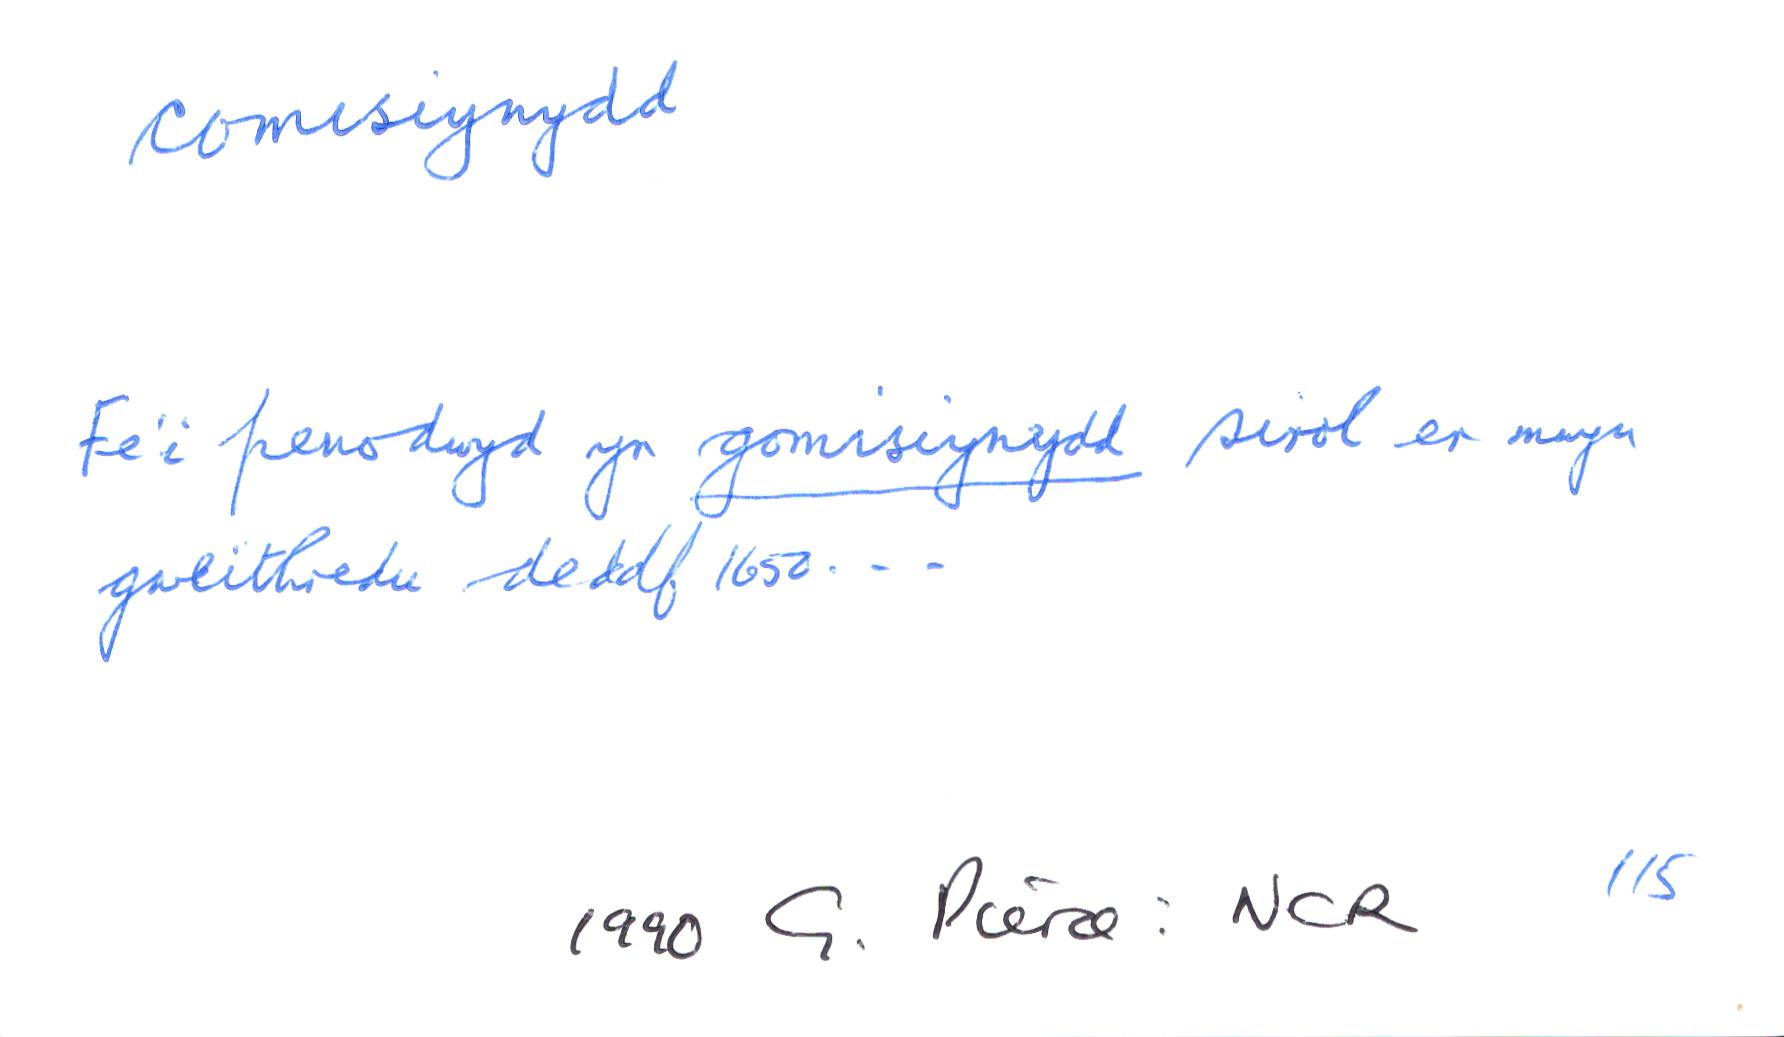 comisiynydd
Fe'i penodwyd yn gomisiynydd sirol er mwyn
gweithredu deddf 1650. - -
115
1990 G. Pierce: NCR